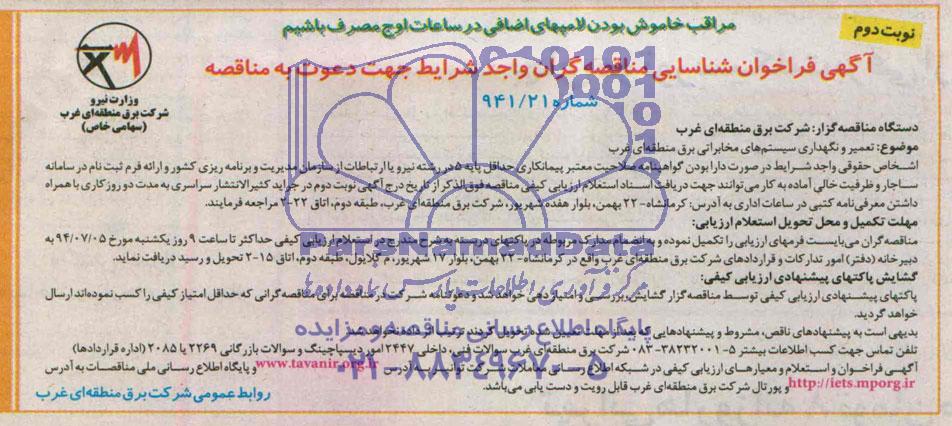 مراقب خاموش بودن لامپهای اضافی در ساعات اوج مصرف باشیم
نوبت دوم
آگهی فراخوان شناسایی مناقصه گران واجد شرایط جهت دعوت به مناقصه
شماره ۹۴۱/۲۱
وزارت نیرو
شرکت برق منطقه‌ای غرب
(سهامی خاص)
دستگاه مناقصه گزار: شرکت برق منطقه‌ای غرب
موضوع: تعمیر و نگهداری سیستم‌های مخابراتی برق منطقه‌ای غرب
اشخاص حقوقی واجد شرایط در صورت دارا بودن گواهینامه صلاحیت معتبر پیمانکاری حداقل پایه ۵ در رشته نیرو یا ارتباطات از سازمان مدیریت و برنامه ریزی کشور و ارائه فرم ثبت نام در سامانه
ساجار و ظرفیت خالی آماده به کار می‌توانند جهت دریافت اسناد استعلام ارزیابی کیفی مناقصه فوق‌الذکر از تاریخ درج آگهی نوبت دوم در جراید کثیرالانتشار سراسری به مدت دو روز کاری با همراه
داشتن معرفی‌نامه کتبی در ساعات اداری به آدرس: کرمانشاه- ۲۲ بهمن، بلوار هفده شهریور، شرکت برق منطقه‌ای غرب، طبقه دوم، اتاق ۲۲-۲ مراجعه فرمایند.
مهلت تکمیل و محل تحویل استعلام ارزیابی:
مناقصه گران می‌بایست فرمهای ارزیابی را تکمیل نموده و به انضمام مدارک مربوطه در پاکتهای دربسته به شرح مندرج در استعلام ارزیابی کیفی حداکثر تا ساعت ۹ روز یکشنبه مورخ ۹۴/۰۷/۰۵ به
دبیرخانه (دفتر) امور تدارکات و قراردادهای شرکت برق منطقه‌ای غرب واقع در کرمانشاه- ۲۲ بهمن، بلوار ۱۷ شهریور، م گلایول، طبقه دوم، اتاق ۱۵-۲ تحویل و رسید دریافت نماید.
گشایش پاکتهای پیشنهادی ارزیابی کیفی:
پاکتهای پیشنهادی ارزیابی کیفی توسط مناقصه گزار گشایش، بررسی و امتیازدهی خواهد شد و دعوتنامه شرکت در مناقصه برای مناقصه گرانی که حداقل امتیاز کیفی را کسب نموده‌اند ارسال
خواهد گردید.
بدیهی است به پیشنهادهای ناقص، مشروط و پیشنهادهایی که بعد از مدت تعیین شده تحویل گردند ترتیب اثر داده نخواهد شد.
تلفن تماس جهت کسب اطلاعات بیشتر ۵-۳۸۲۳۲۰۰۱-۰۸۳ شرکت برق منطقه‌ای غرب سوالات فنی داخلی ۲۴۴۷ امور دیسپاچینگ و سوالات بازرگانی ۲۲۶۹ یا ۲۰۸۵ (اداره قراردادها)
آگهی فراخوان و استعلام و معیارهای ارزیابی کیفی در شبکه اطلاع رسانی معاملاتی شرکت توانیر به آدرس www.tavanir.org.ir و پایگاه اطلاع رسانی ملی مناقصات به آدرس
http://iets.mporg.ir و پورتال شرکت برق منطقه‌ای غرب قابل رویت و دست یابی می‌باشد.
روابط عمومی شرکت برق منطقه‌ای غرب
ParsNamadData
مرکز فرآوری اطلاعات پارس نماد داده‌ها
پایگاه اطلاع رسانی مناقصه و مزایده
۰۲۱-۸۸۳۴۹۶۷۰-۵